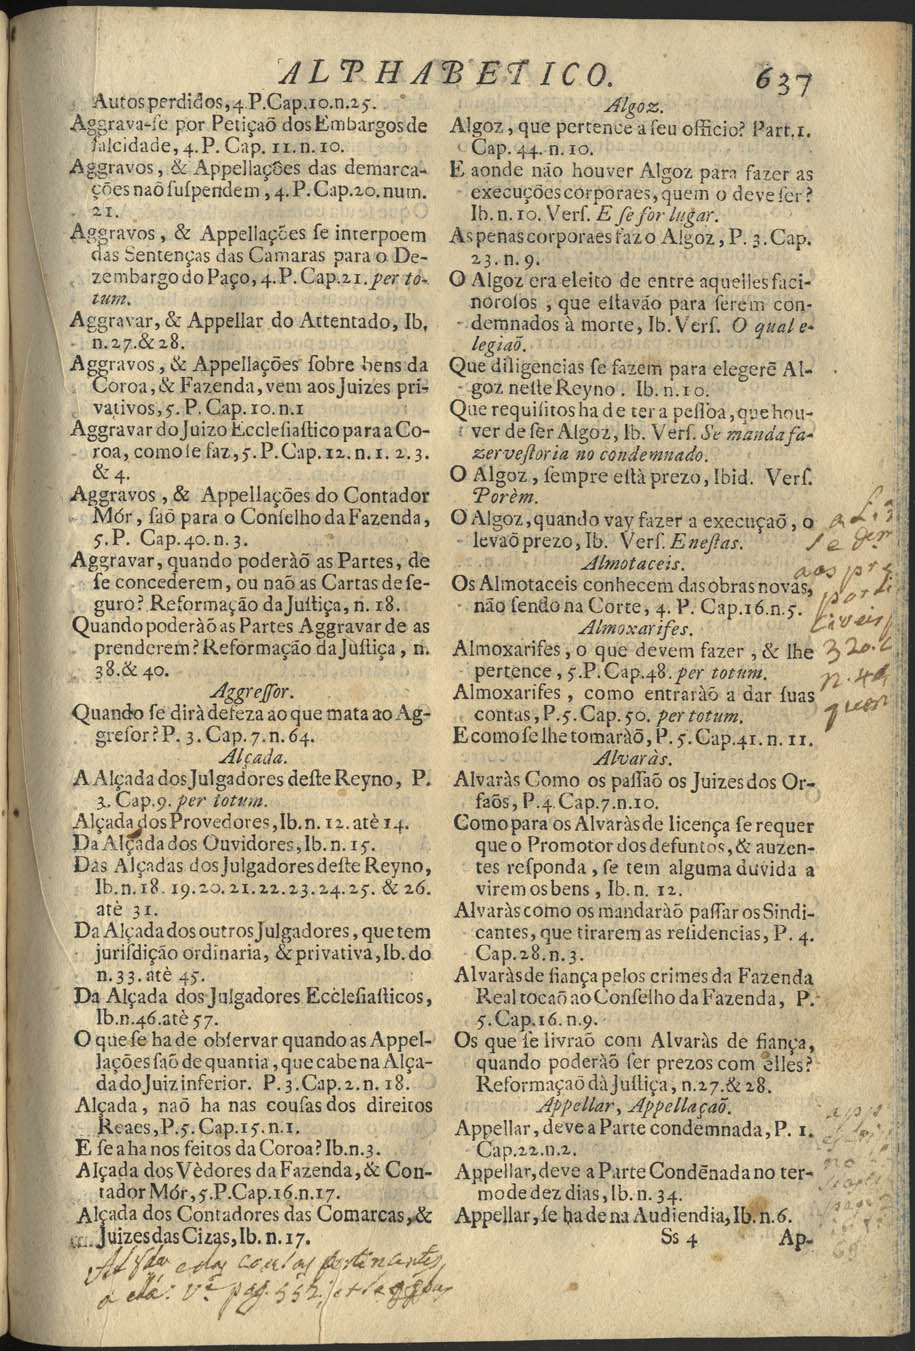 ALPHABETICO. 637
Autos perdidos, 4. P. Cap. 10. n. 25.
Aggrava-ſe por Petiçaõ dos Embargos de
falcidade, 4. P. Cap. 11. n. 10.
Aggravos, & Appellações das demarca-
ções naõ ſuſpendem, 4. P. Cap. 20. num.
21.
Aggravos, & Appellações ſe interpoem
das Sentenças das Camaras para o De-
zembargo do Paço, 4. P. Cap. 21. per to-
tum.
Aggravar, & Appellar do Attentado, Ib,
n. 27. & 28.
Aggravos, & Appellações ſobre bens da
Coroa, & Fazenda, vem aos Juizes pri-
vativos, 5. P. Cap. 10. n. 1
Aggravar do Juizo Eccleſiaſtico para a Co-
roa, como ſe faz, 5. P. Cap. 12. n. 1. 2. 3.
& 4.
Aggravos, & Appellações do Contador
Mór, ſaõ para o Conſelho da Fazenda,
5. P. Cap. 40. n. 3.
Aggravar, quando poderàõ as Partes, de
ſe concederem, ou naõ as Cartas de ſe-
guro? Reformação da Juſtiça, n. 18.
Quando poderàõ as Partes Aggravar de as
prenderem? Reformação da Juſtiça, n.
38. & 40.
Aggreſſor.
Quando ſe dirà defeza ao que mata ao Ag-
greſor? P. 3. Cap. 7. n. 64.
Alçada.
A Alçada dos Julgadores deſte Reyno, P.
3. Cap. 9. per totum.
Alçada dos Provedores, Ib. n. 12. atè 14.
Da Alçada dos Ouvidores, Ib. n. 15.
Das Alçadas dos Julgadores deſte Reyno,
Ib. n. 18. 19. 20. 21. 22. 23. 24. 25. & 26.
atè 31.
Da Alçada dos outros Julgadores, que tem
juriſdição ordinaria, & privativa, Ib. do
n. 33. atè 45.
Da Alçada dos Julgadores Eccleſiaſticos,
Ib. n. 46. atè 57.
O que ſe ha de obſervar quando as Appel-
lações ſaõ de quantia, que cabe na Alça-
da do Juiz inferior. P. 3. Cap. 2. n. 18.
Alçada, naõ ha nas couſas dos direitos
Reaes, P. 5. Cap. 15. n. 1.
E ſe a ha nos feitos da Coroa? Ib. n. 3.
Alçada dos Vèdores da Fazenda, & Con-
tador Mór, 5. P. Cap. 16. n. 17.
Alçada dos Contadores das Comarcas, &
Juizes das Cizas, Ib. n. 17.
Algoz.
Algoz, que pertence a ſeu officio? Part. 1.
Cap. 44. n. 10.
E aonde não houver Algoz para fazer as
execuções corporaes, quem o deve ſer?
Ib. n. 10. Verſ. E ſe for lugar.
As penas corporaes faz o Algoz, P. 3. Cap.
23. n. 9.
O Algoz era eleito de entre aquelles faci-
noroſos, que eſtavão para ſerem con-
demnados à morte, Ib. Verſ. O qual e-
legiaõ.
Que diligencias ſe fazem para elegerẽ Al-
goz neſte Reyno. Ib. n. 10.
Que requiſitos ha de ter a peſſoa, que hou-
ver de ſer Algoz, Ib. Verſ. Se manda fa-
zer veſtoria no condemnado.
O Algoz, ſempre eſtà prezo, Ibid. Verſ.
Porèm.
O Algoz, quando vay fazer a execuçaõ, o
levaõ prezo, Ib. Verſ. E neſtas.
Almotaceis.
Os Almotaceis conhecem das obras novas,
não ſendo na Corte, 4. P. Cap. 16. n. 5.
Almoxarifes.
Almoxarifes, o que devem fazer, & lhe
pertence, 5. P. Cap. 48. per totum.
Almoxarifes, como entraràõ a dar ſuas
contas, P. 5. Cap. 50. per totum.
E como ſe lhe tomaràõ, P. 5. Cap. 41. n. 11.
Alvaràs.
Alvaràs Como os paſſaõ os Juizes dos Or-
faõs, P. 4. Cap. 7. n. 10.
Como para os Alvaràs de licença ſe requer
que o Promotor dos defuntos, & auzen-
tes reſponda, ſe tem alguma duvida a
virem os bens, Ib. n. 12.
Alvaràs como os mandaràõ paſſar os Sindi-
cantes, que tirarem as reſidencias, P. 4.
Cap. 28. n. 3.
Alvaràs de fiança pelos crimes da Fazenda
Real tocaõ ao Conſelho da Fazenda, P.
5. Cap. 16. n. 9.
Os que ſe livraõ com Alvaràs de fiança,
quando poderàõ ſer prezos com elles?
Reformaçaõ dà Juſtiça, n. 27. & 28.
Appellar, Appellaçaõ.
Appellar, deve a Parte condemnada, P. 1.
Cap. 22. n. 2.
Appellar, deve a Parte Condẽnada no ter-
mo de dez dias, Ib. n. 34.
Appellar, ſe ha de na Audiendia, Ib. n. 6.
Ss 4 Ap-
aos
320
n.
pag. 552